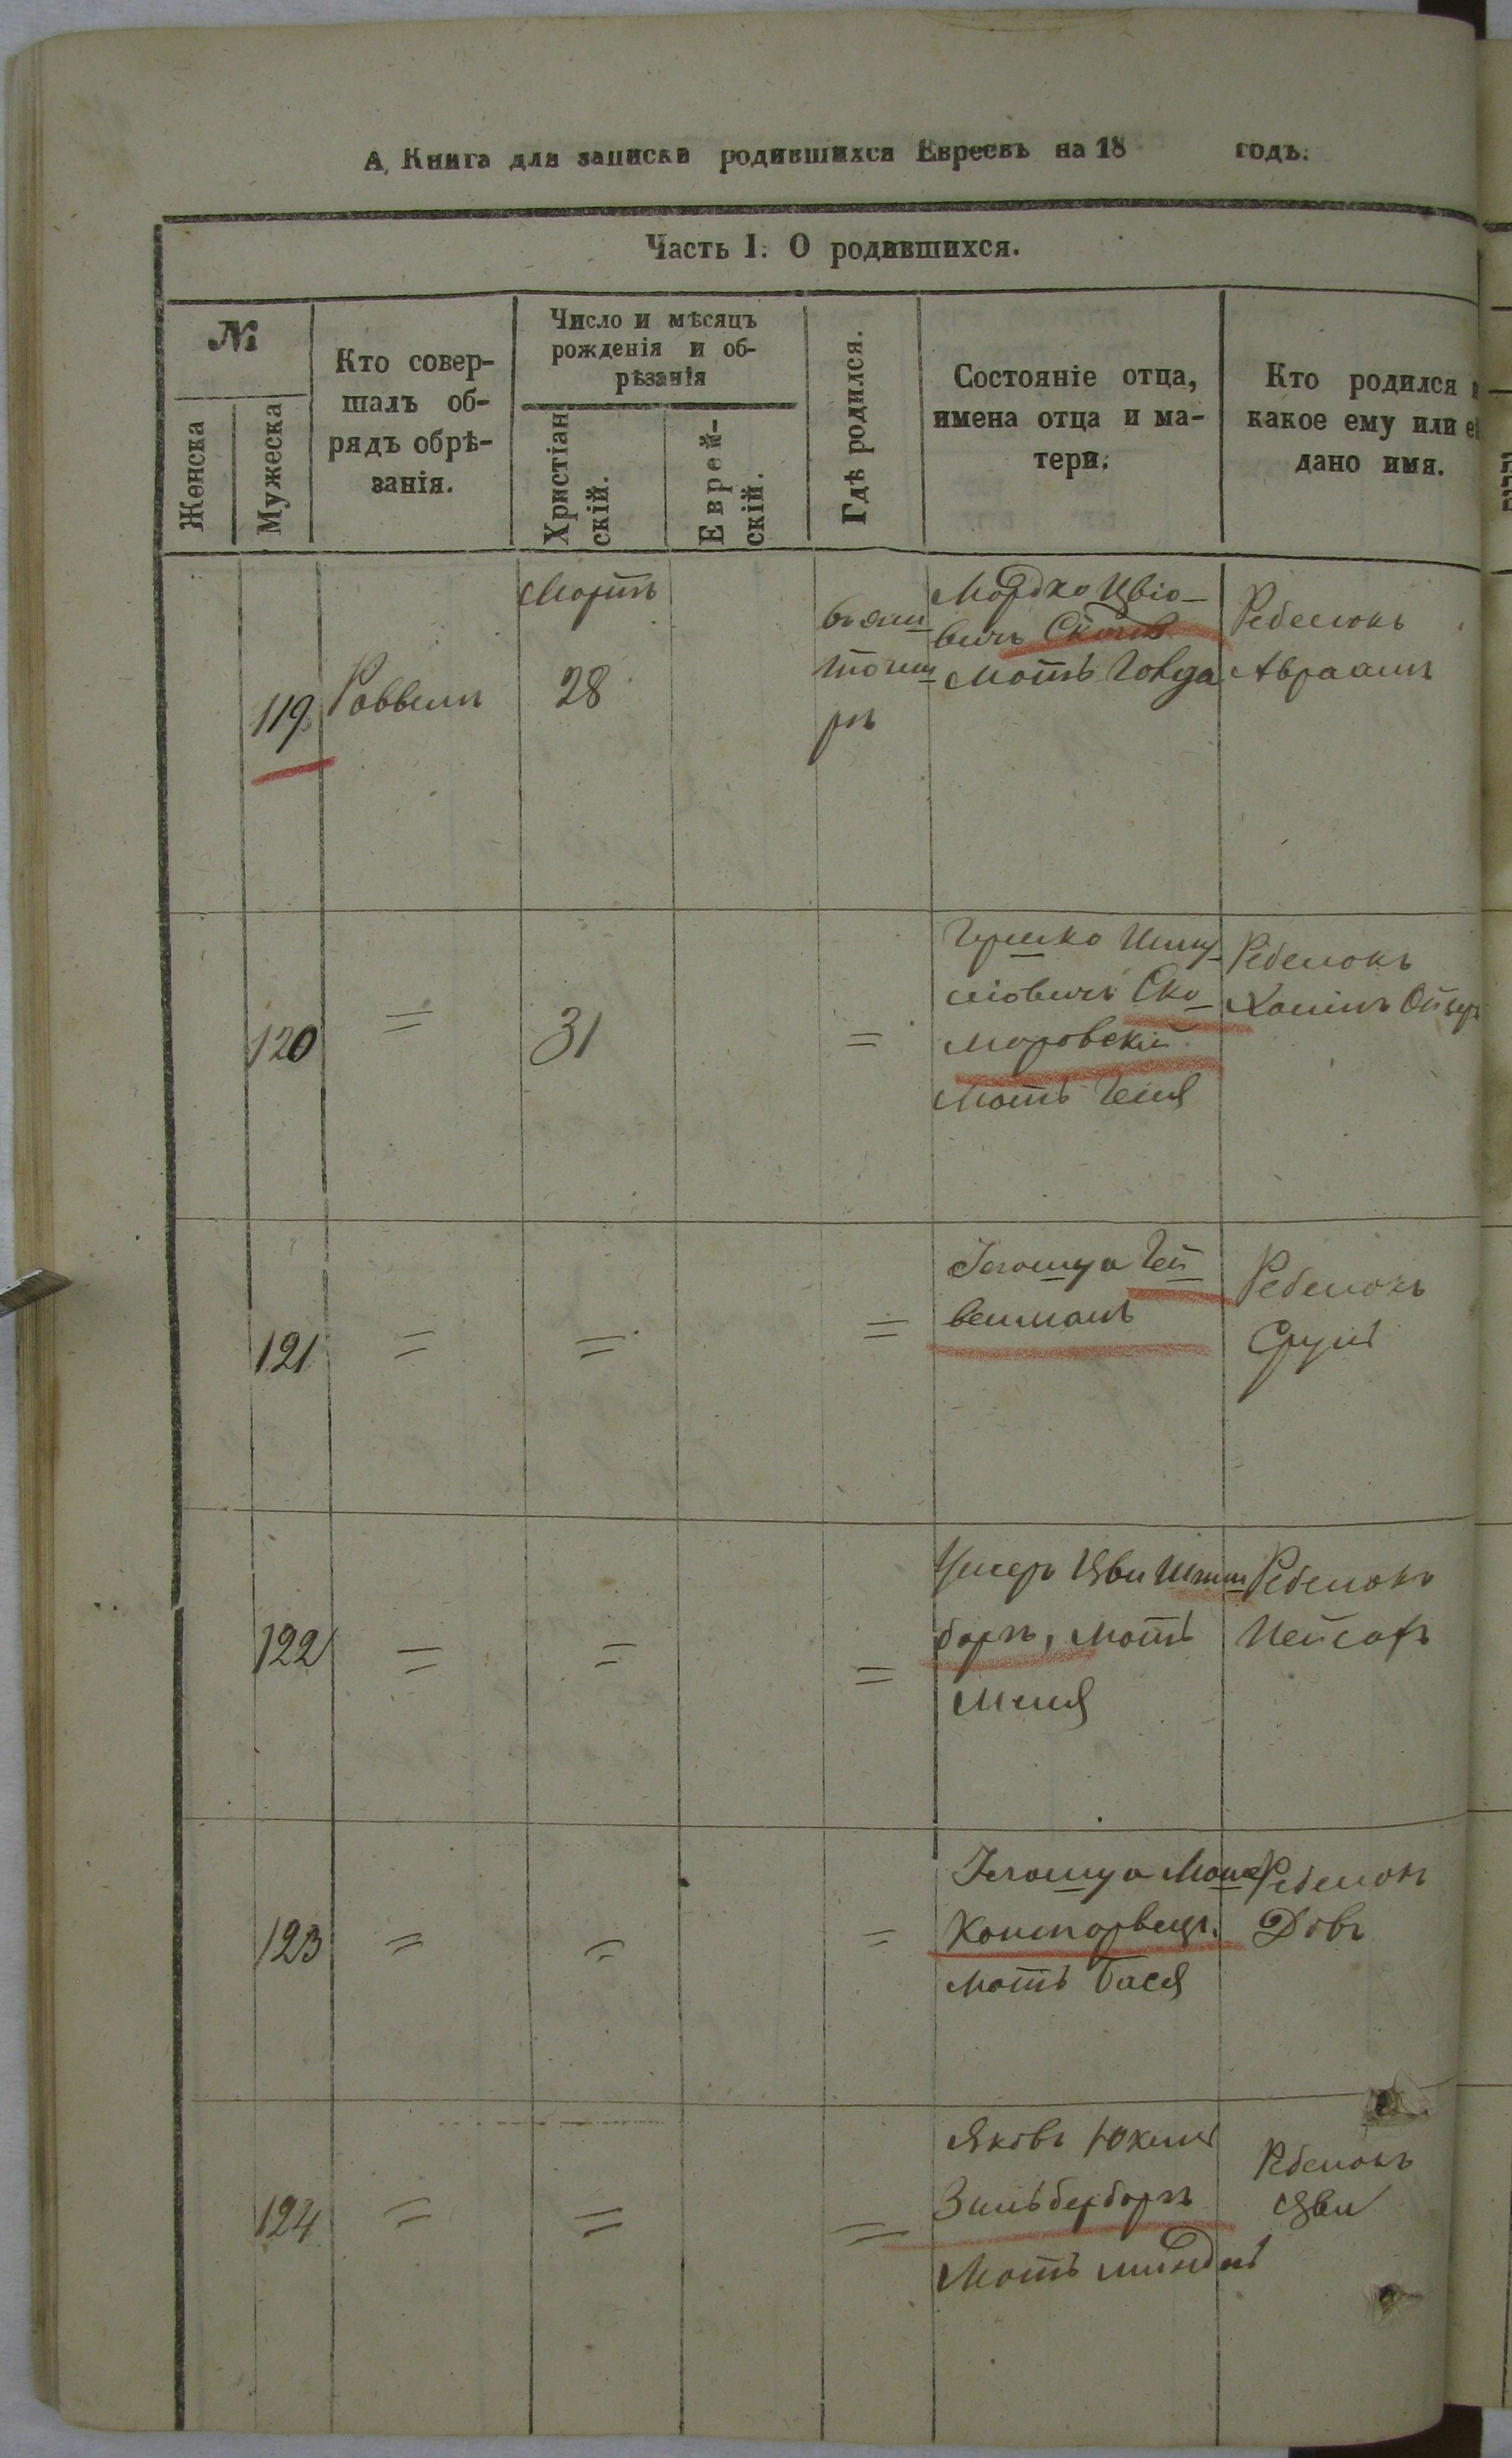 А, Книга для записки родившихся Евреевъ на 18 годъ.
Часть I. О родившихся.
№
Женска
Мужеска
Кто совер-
шалъ об-
рядъ обрѣ-
занія.
Число и мѣсяцъ
рожденія и об-
рѣзанія
Христіан
скій.
Еврей-
скій.
Гдѣ родился.
Состояніе отца,
имена отца и ма-
тери.
Кто родился и
какое ему или ей
дано имя.
Мартъ
119
Раввинъ
28
въ жи
томи
рѣ
Мордко Цвіо-
вичъ
Мать Голда
Ребенокъ
Авраамъ
120
=
31
=
Гершко
Ско-
моровскій
Мать Геня
Ребенокъ
Хаимъ Ойзеръ
121
=
=
=
Іегошуа Гей
венманъ
Ребенокъ
Сруль
122
=
=
=
Ушеръ Цви Штейн
баргъ, мать
Меня
Ребенокъ
123
=
=
=
Іегошуа Моше
Канторвецъ.
мать Бася
Ребенокъ
Довъ
124
=
=
=
Яковъ Юхимъ
Зильберборгъ
Мать Миндль
Ребенокъ
Цви